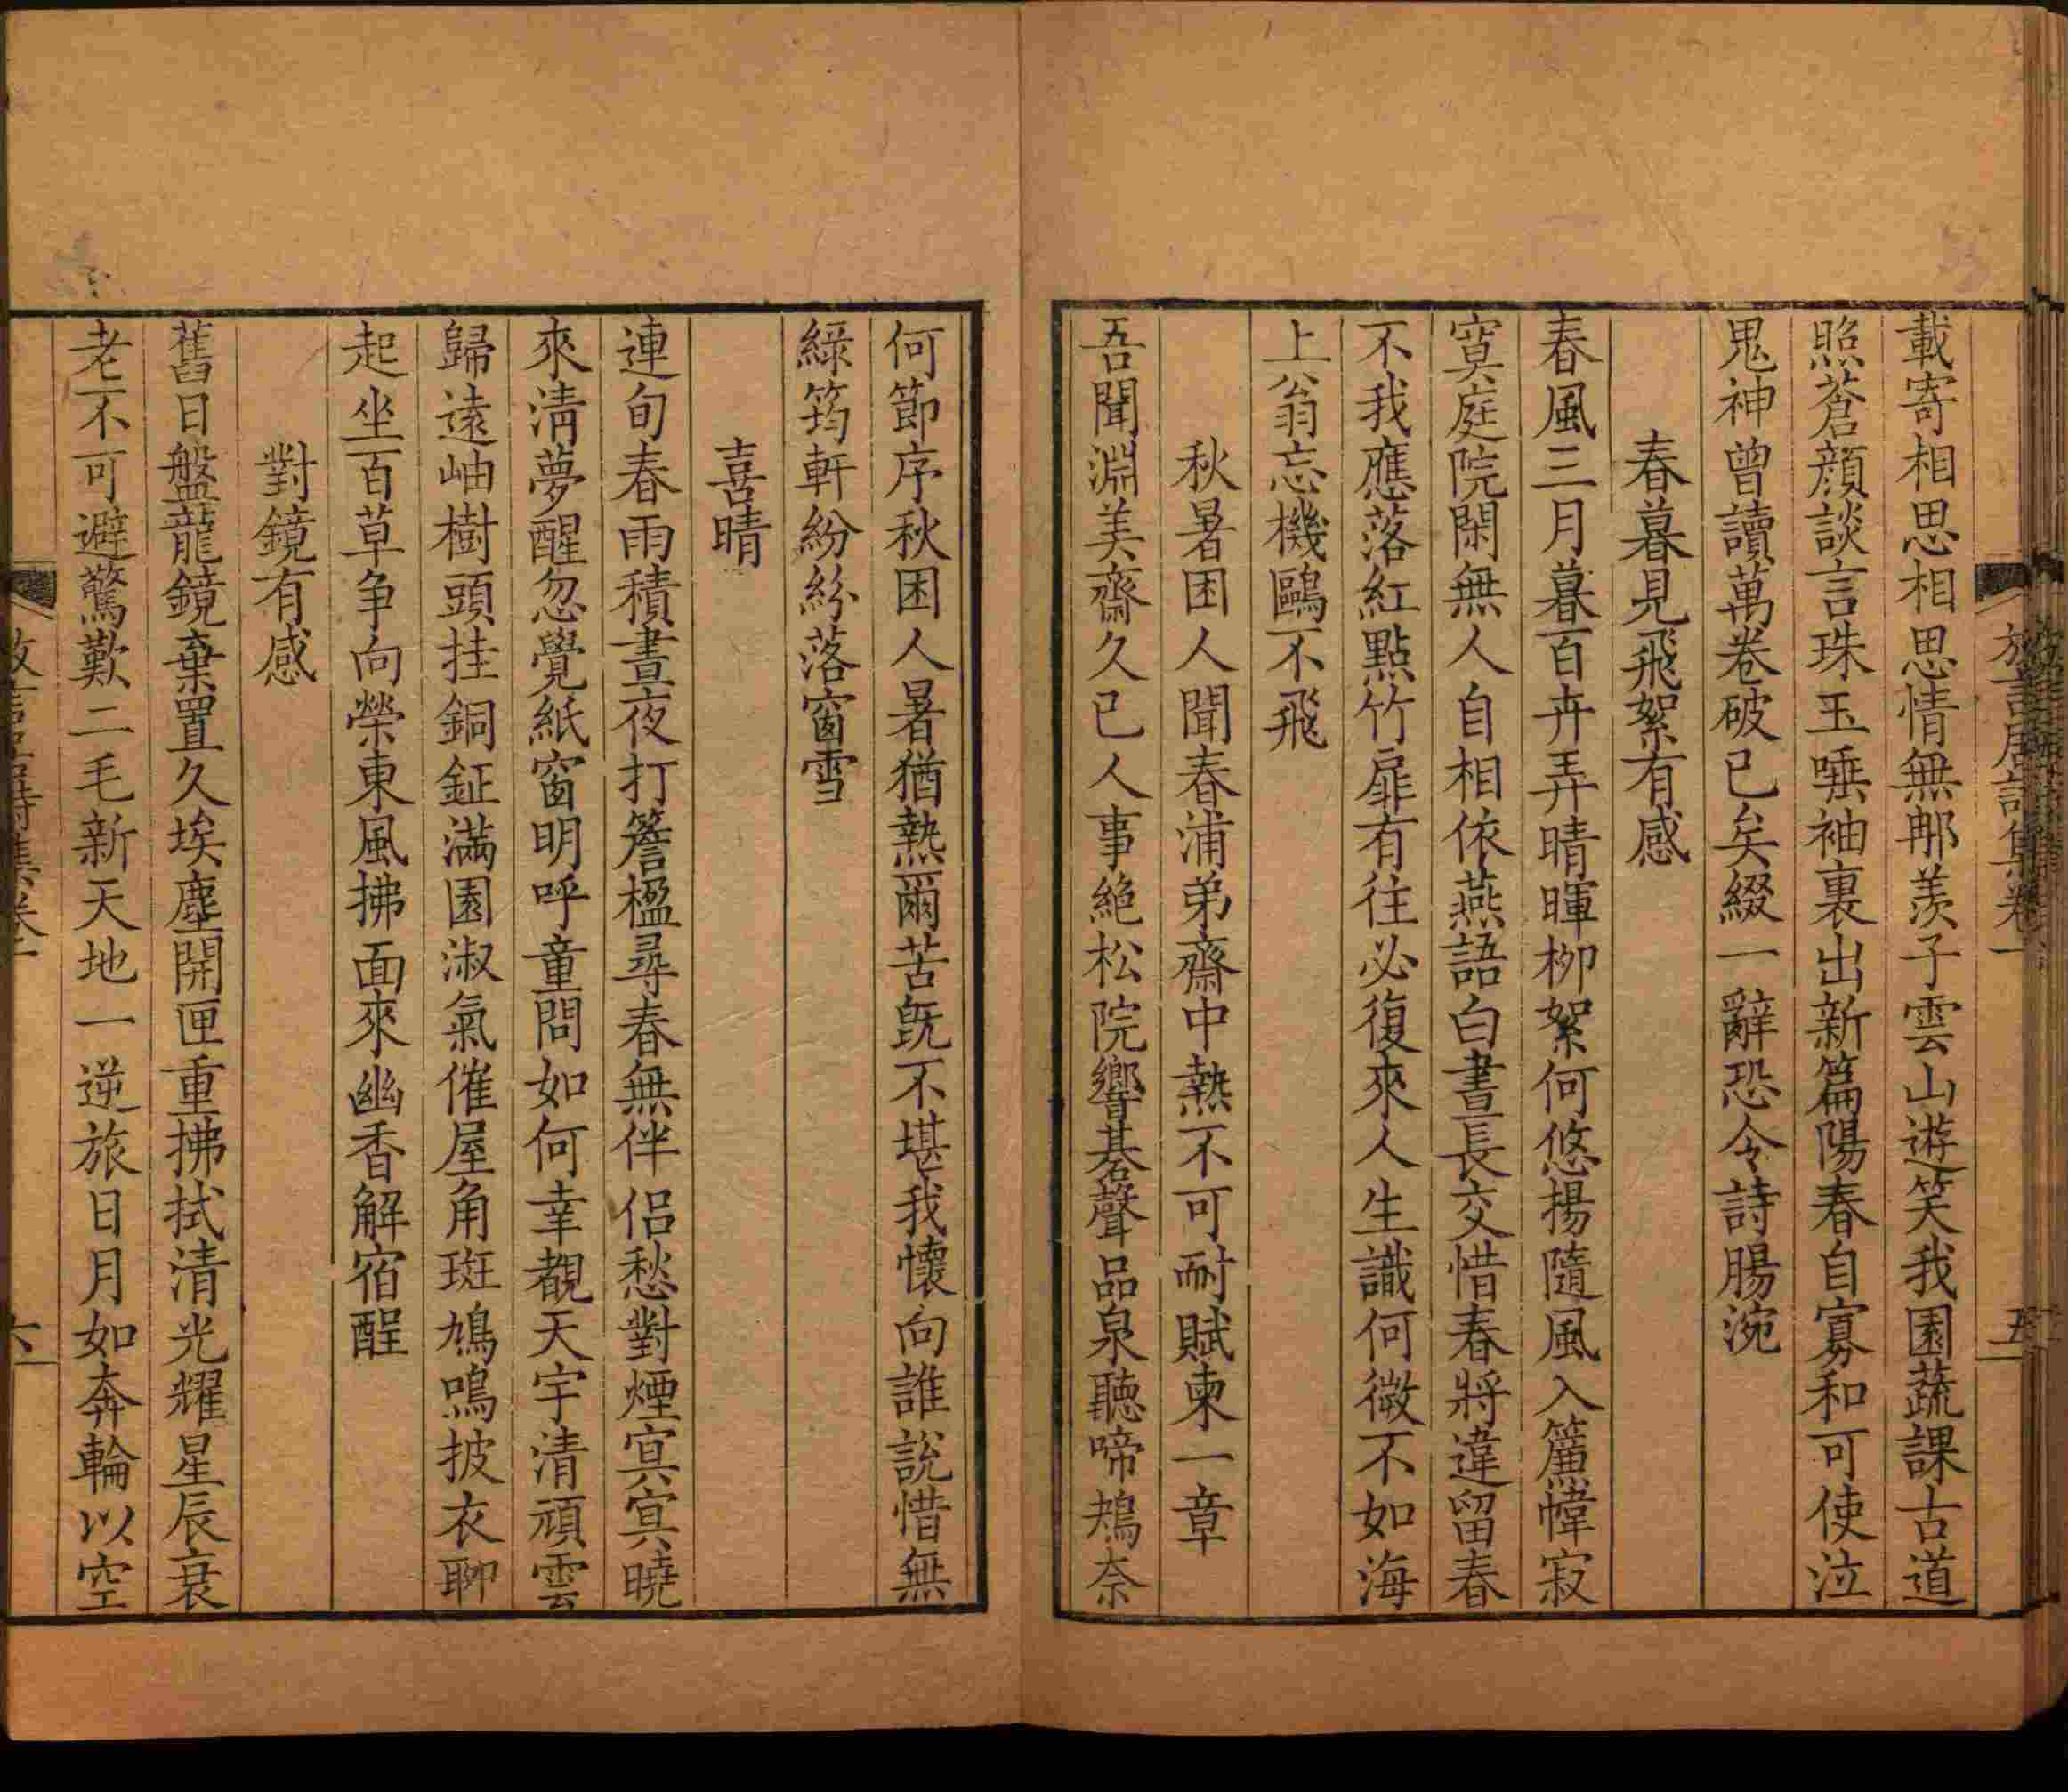 載寄相思相思情無郍羨子雲山遊笑我園蔬課古道
照蒼顔談言珠玉唾袖裏出新篇陽春自寡和可使泣
鬼神曾讀萬卷破已矣綴一辭恐令詩腸涴
春暮見飛絮有感
春風三月暮百卉弄晴暉柳絮何悠揚隨風入簾幃寂
寞庭院閑無人自相依燕語白晝長交惜春將違留春
不我應落紅點竹扉有往必復來人生識何微不如海
上翁忘機鷗不飛
秋暑困人聞春浦弟齋中熱不可耐賦柬一章
吾聞淵美齋久已人事絶松院響碁聲品泉聽啼鴂奈
何節序秋困人暑猶熱爾苦旣不堪我懷向誰説惜無
綠筠軒紛紛落窗雪
喜晴
連旬春雨積晝夜打簷楹尋春無伴侶愁對煙冥冥曉
來淸夢醒忽覺紙窗明呼童問如何幸覩天宇清頑雲
歸遠岫樹頭挂銅鉦滿園淑氣催屋角斑鳩鳴披衣聊
起坐百草争向榮東風拂面來幽香解宿酲
對鏡有感
舊日盤龍鏡棄置久埃塵開匣重拂拭清光耀星辰衰
老不可避驚歎二毛新天地一逆旅日月如奔輪以空